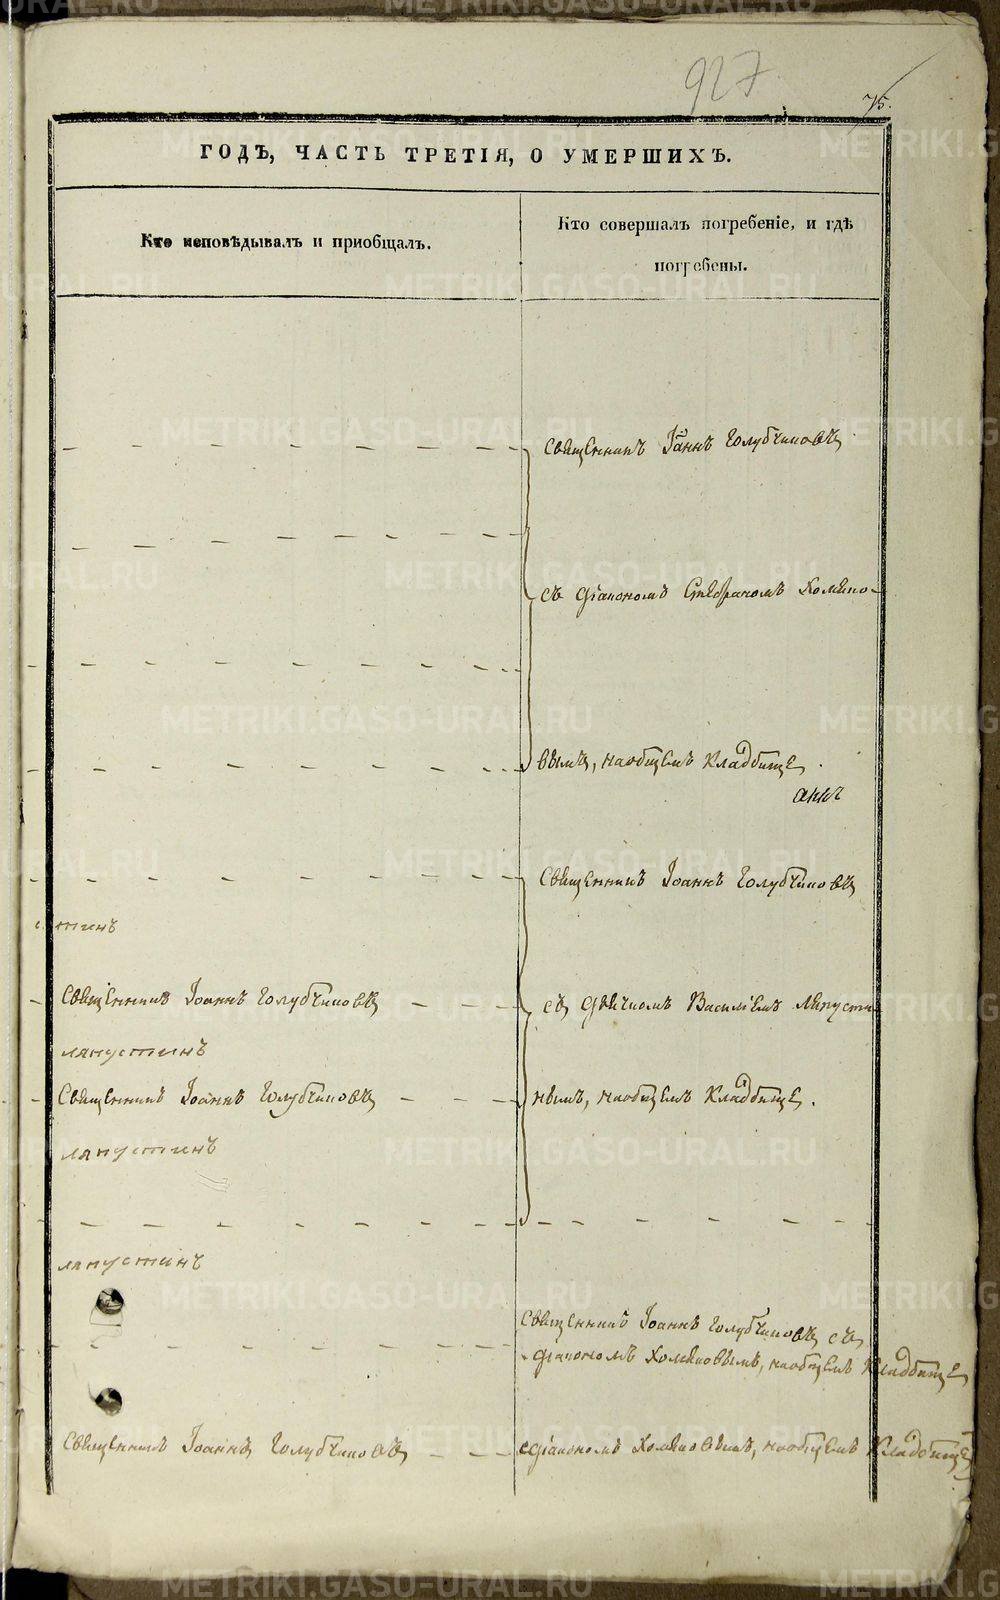 927
75.
ГОДЪ, ЧАСТЬ ТРЕТІЯ, О УМЕРШИХЪ.
Кто исповѣдывалъ и приобщалъ.
Кто совершалъ погребеніе, и гдѣ
погребены.
Священникъ Іоаннъ Голубчиковъ
съ діакономъ Стефаномъ Хомяко-
вымъ, на общемъ кладбище
Священникъ Іоаннъ Голубчиковъ
Священникъ Іоаннъ Голубчиковъ
съ дьячкомъ Василіемъ Ляпусти
ляпустинъ
Священникъ Іоаннъ Голубчиковъ
нымъ, на общемъ кладбище.
ляпустинъ
ляпустинъ
Священникъ Іоаннъ Голубчиковъ съ
діакономъ Хомяковымъ, на общемъ кладбище
Священникъ Іоаннъ Голубчиковъ
съ діакономъ Хомяковымъ, на общемъ кладбище
METRIKI.GASO-URAL.RU